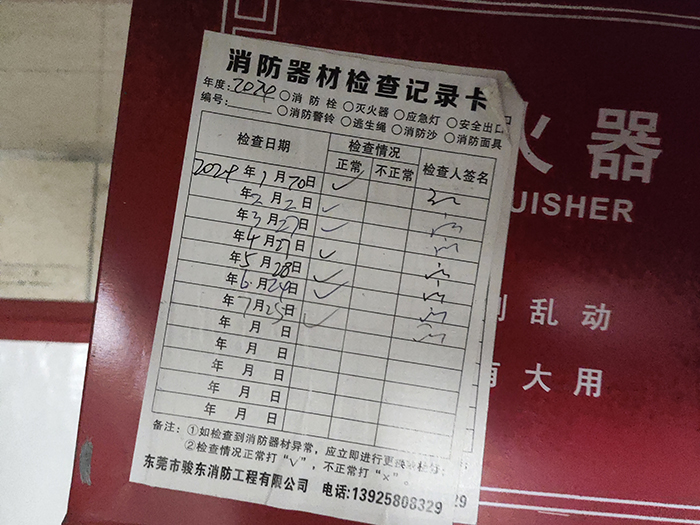 消防器材检查记录卡
年度:2024 ○消防栓 ○灭火器 ○应急灯 ○安全出口
编号:______ ○消防警铃 ○逃生绳 ○消防沙 ○消防面具
检查日期 检查情况 检查人签名
正常 不正常
2024年1月20日 ✓
年2月2日 ✓
年3月27日 ✓
年4月27日 ✓
年5月28日 ✓
年6月24日 ✓
年7月25日 ✓
年 月 日
年 月 日
年 月 日
年 月 日
年 月 日
备注:①如检查到消防器材异常,应立即进行更换
②检查情况正常打“√”,不正常打“×”。
东莞市骏东消防工程有限公司 电话:13925808329
29
火器
UISHER
乱动
大用